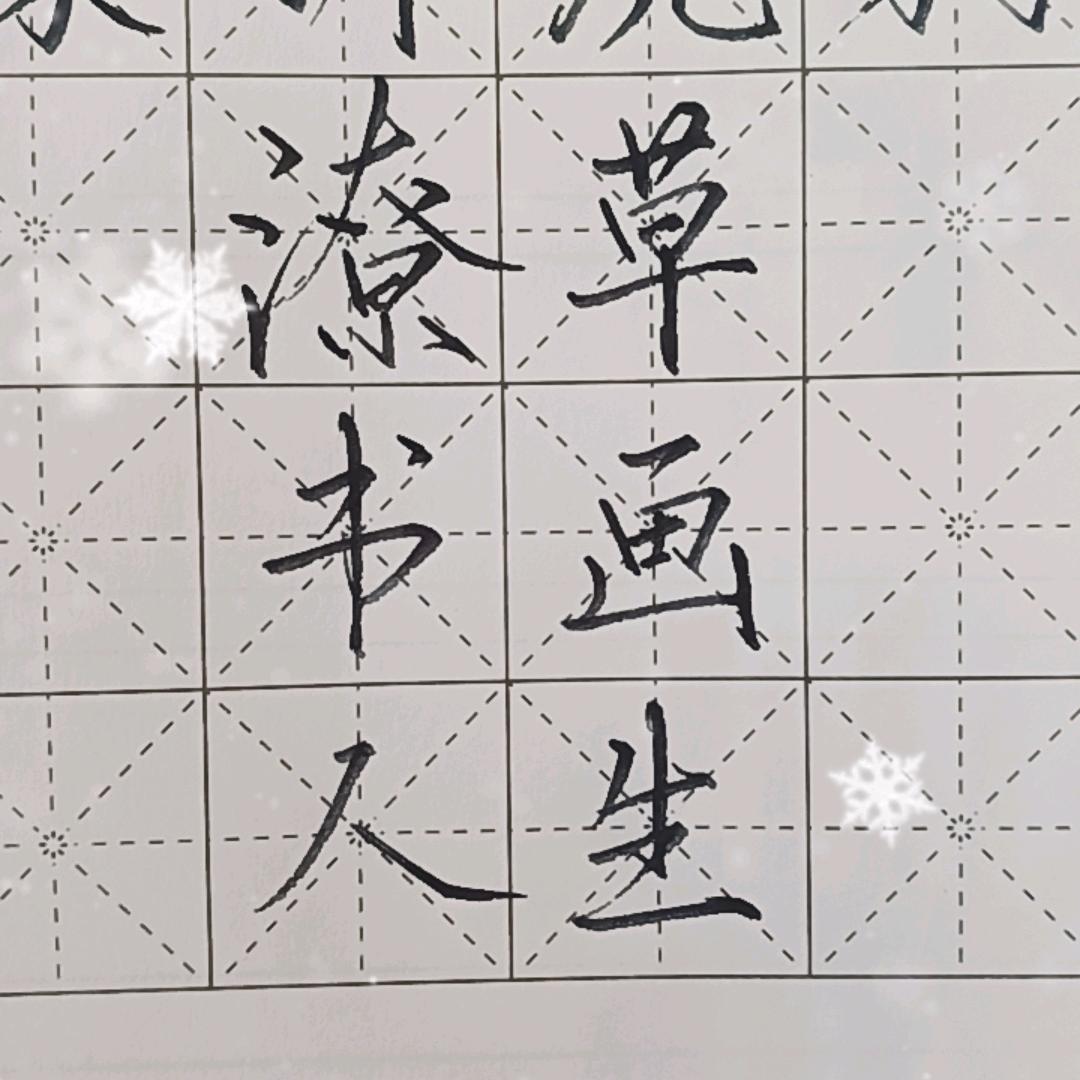 潦草
书画
人生